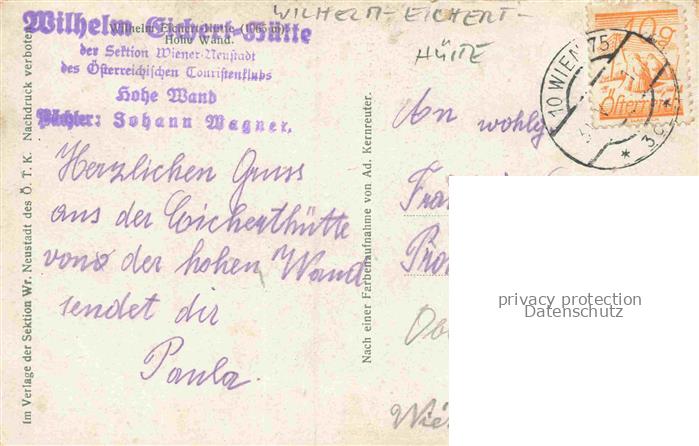 WILHELM-EICHERT-
HÜTTE
Wilhelm Eichert-Hütte
Wilhelm Eichert-Hütte
Hohe Wand.
der Sektion Wiener-Neustadt
des Österreichischen Touristenklubs
Hohe Wand
Pächter: Johann Wagner.
Herzlichen Gruss
aus der Eicherthütte
von der hohen Wand
sendet dir
Paula.
Im Verlage der Sektion Wr. Neustadt des Ö. T. K. Nachdruck verboten.
Nach einer Farbenaufnahme von Ad. Kernreuter.
An wohlg.
10 g
Österreich
10 WIEN 75
privacy protection
Datenschutz